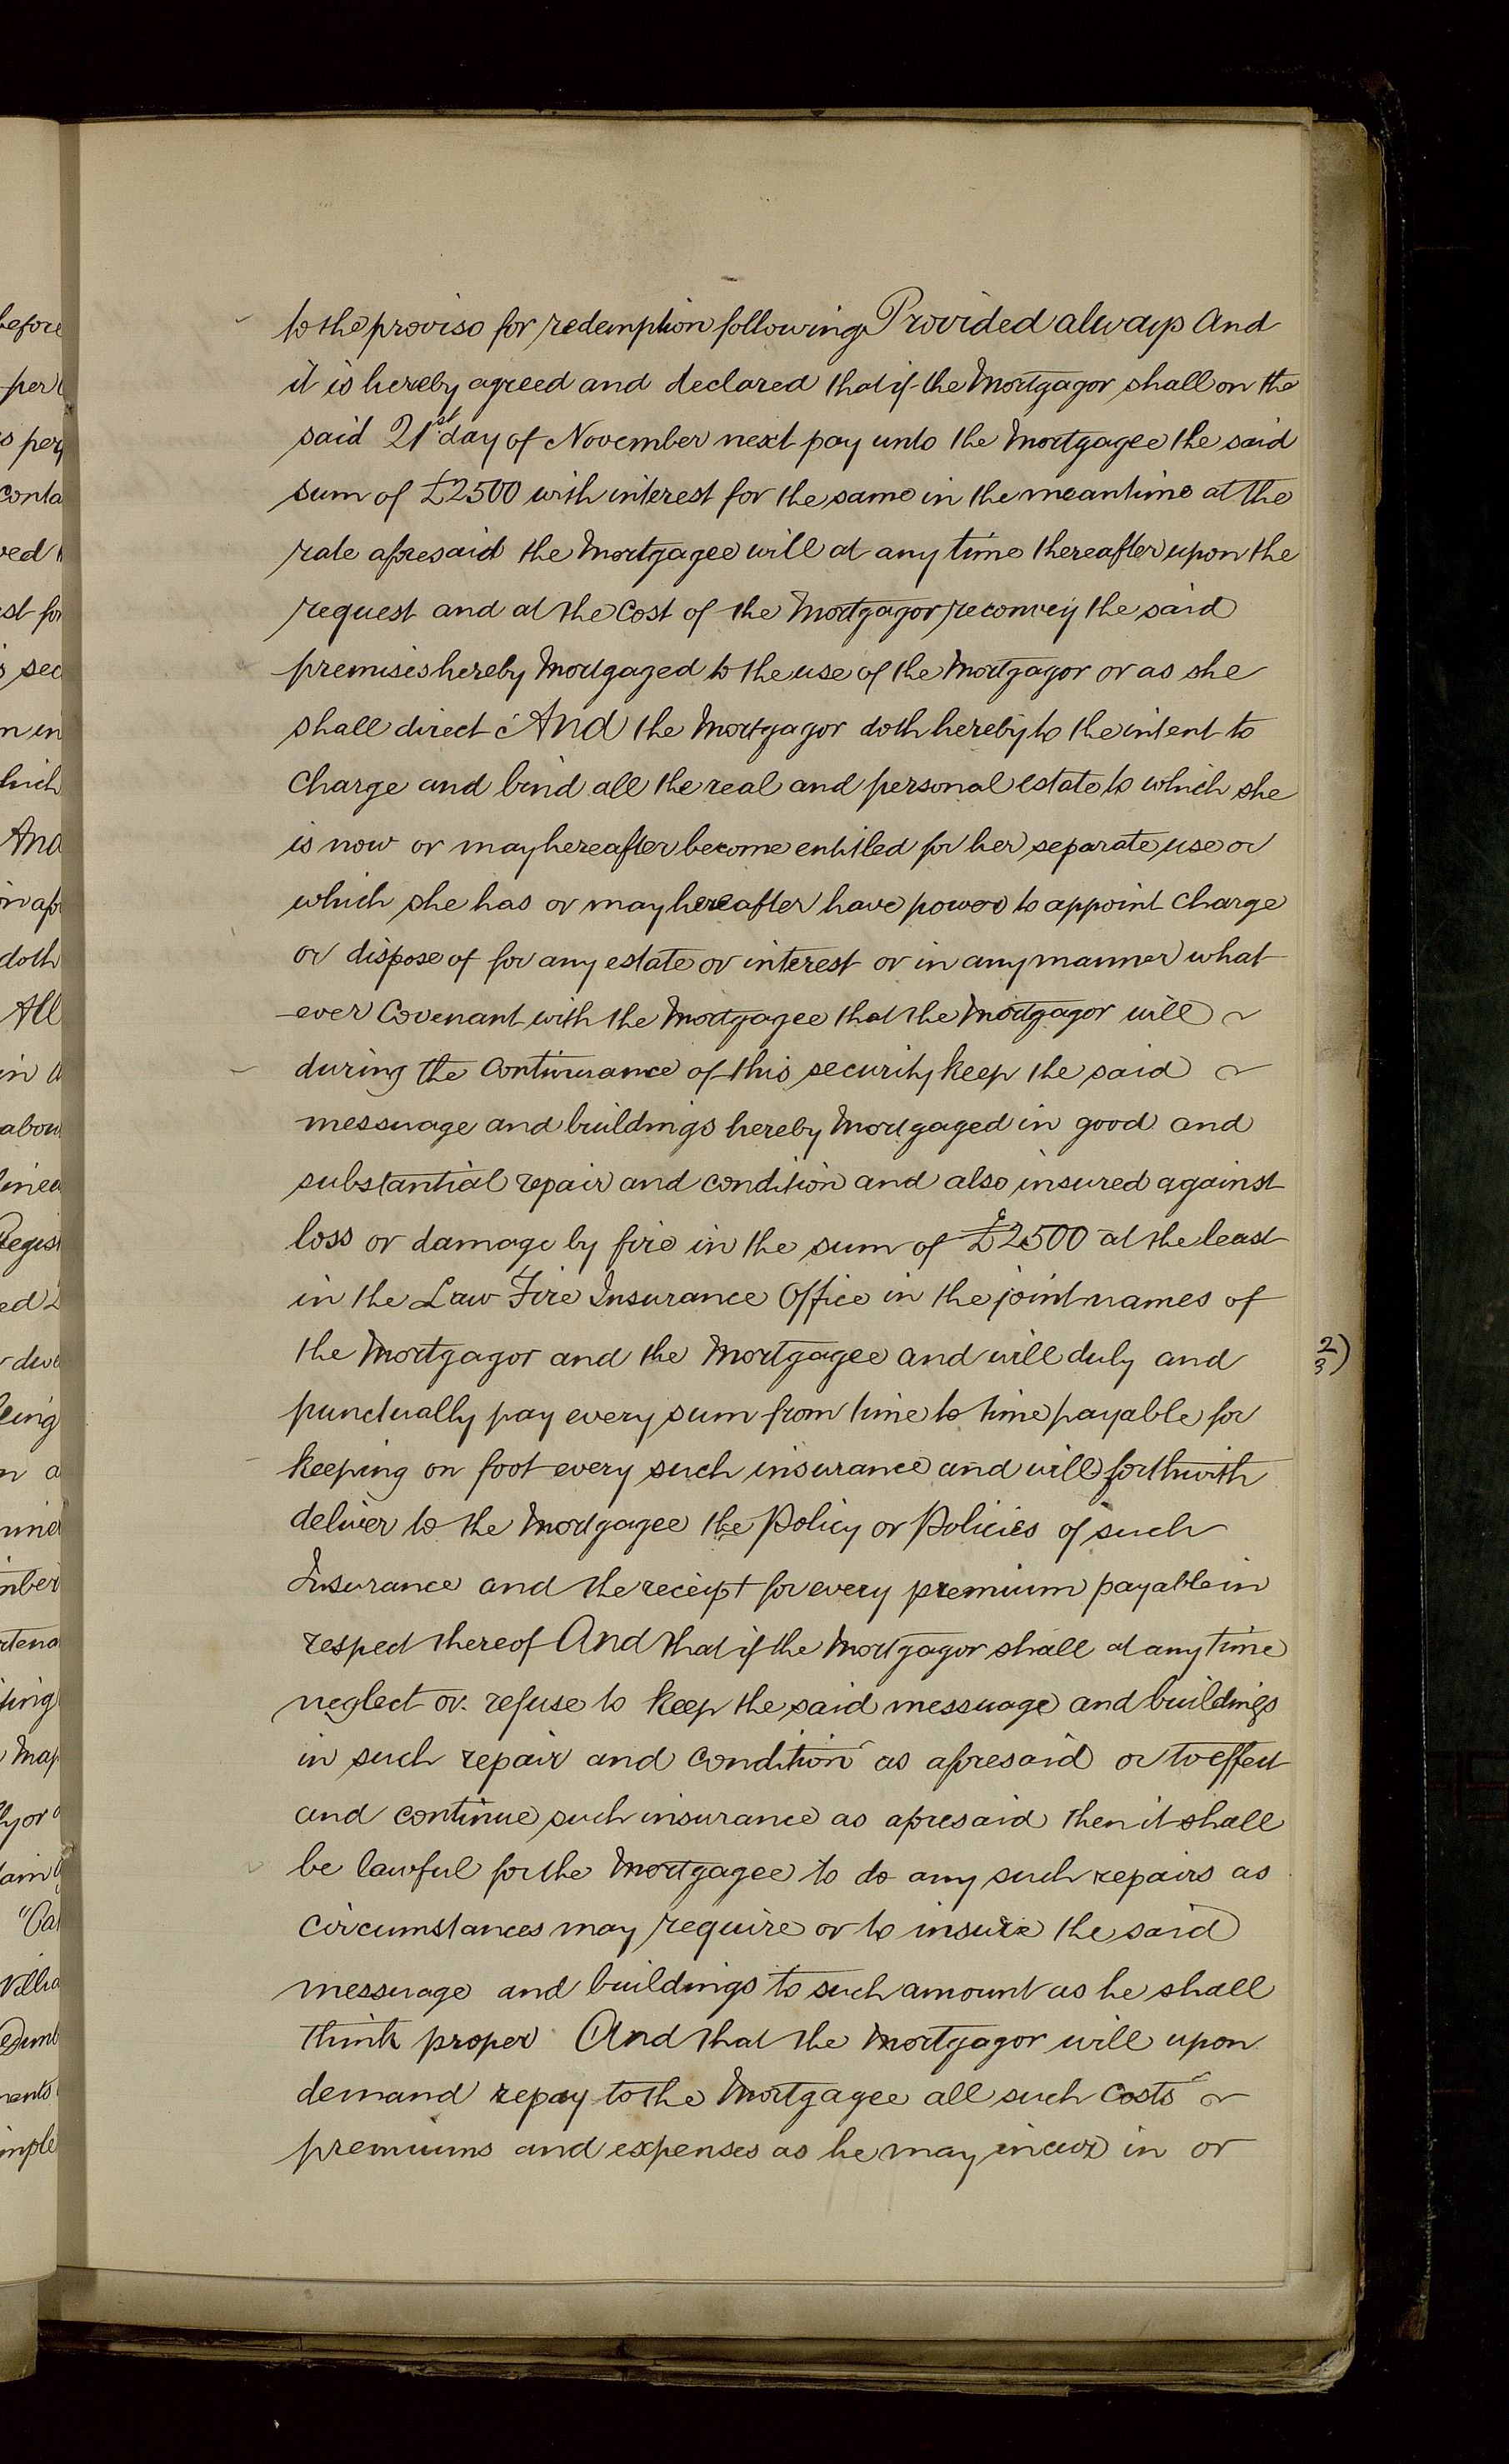 to the proviso for redemption following Provided always And
it is hereby agreed and declared that if the Mortgagor shall on the
said 21st day of November next pay unto the Mortgagee the said
sum of £2500 with interest for the same in the meantime at the
rate aforesaid the Mortgagee will at any time thereafter upon the
request and at the cost of the Mortgagor reconvey the said
premises hereby Mortgaged to the use of the Mortgagor or as she
shall direct And the Mortgagor doth hereby to the intent to
charge and bind all the real and personal estate to which she
is now or may hereafter become entitled for her separate use or
which she has or may hereafter have power to appoint charge
or dispose of for any estate or interest or in any manner what
-ever Covenant with the Mortgagee that the Mortgagor will
during the continuance of this security keep the said
messuage and buildings hereby Mortgaged in good and
substantial repair and condition and also insured against
loss or damage by fire in the sum of £2500 at the least
in the Law Fire Insurance Office in the joint names of
the Mortgagor and the Mortgagee and will duly and
punctually pay every sum from time to time payable for
keeping on foot every such insurance and will forthwith
deliver to the Mortgagee the Policy or Policies of such
Insurance and the receipt for every premium payable in
respect thereof And that if the Mortgagor shall at any time
neglect or refuse to keep the said messuage and buildings
in such repair and condition as aforesaid or to effect
and continue such insurance as aforesaid then it shall
be lawful for the Mortgagee to do any such repairs as
circumstances may require or to insure the said
messuage and buildings to such amount as he shall
think proper And that the Mortgagor will upon
demand repay to the Mortgagee all such costs
premiums and expenses as he may incur in or